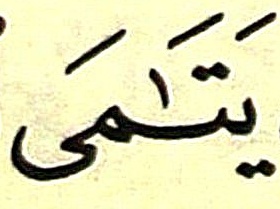 يَتَـٰمَى